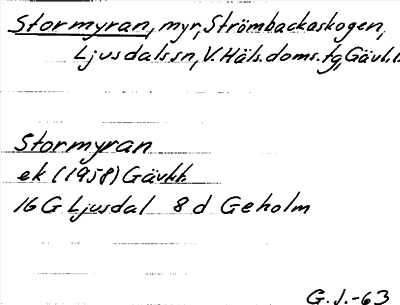 Stormyran, myr, Strömbackaskogen,
Ljusdals sn, V. Häls. doms. tg, Gävl.l.
Stormyran
ek (1958) Gävkh
16 G Ljusdal 8 d Geholm
G. J. -63